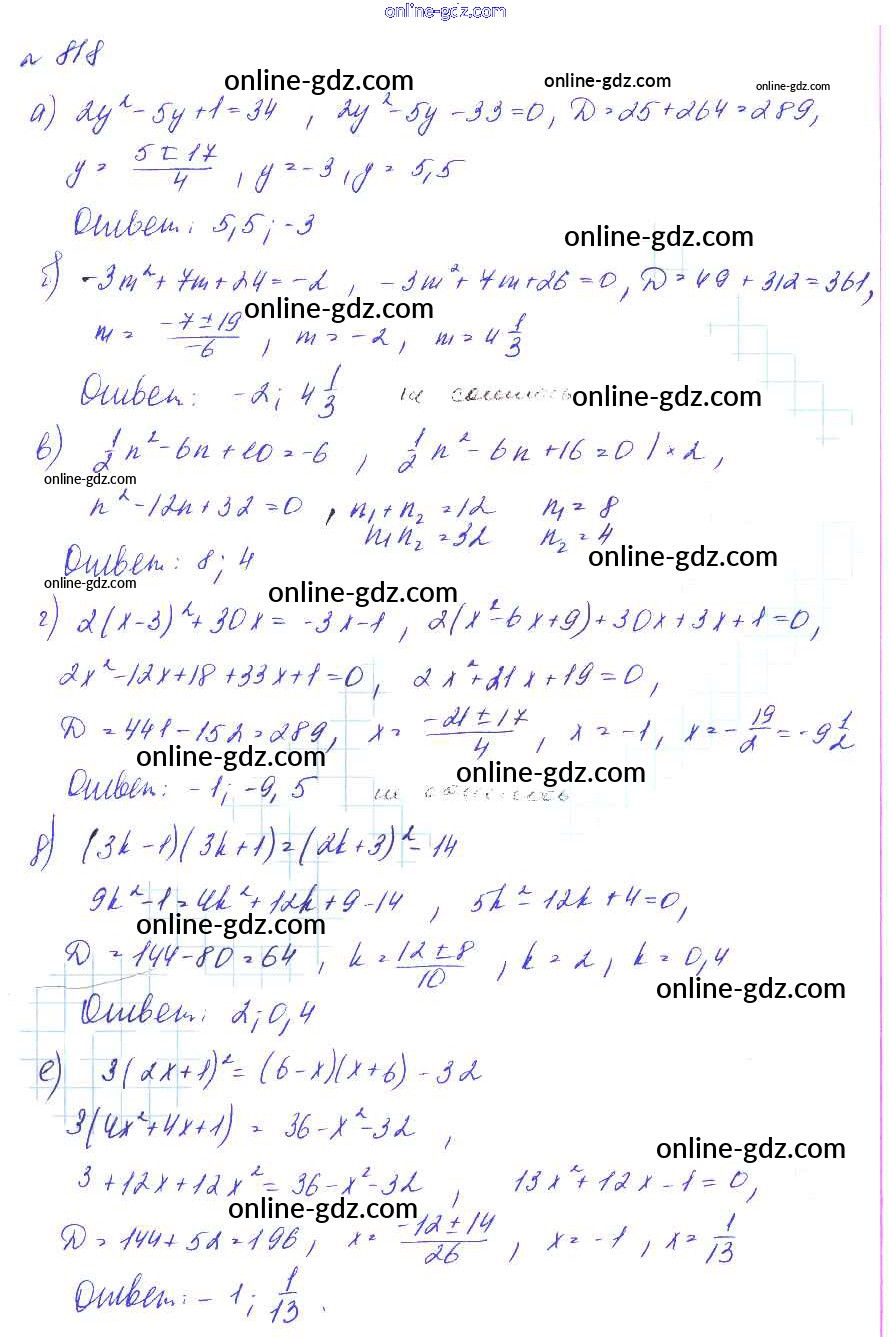 online-gdz.com
№ 818
online-gdz.com online-gdz.com online-gdz.com
а) 2y² - 5y + 1 = 34 , 2y² - 5y - 33 = 0, D = 25 + 264 = 289,
y = (5 ± 17)/4 , y = -3, y = 5,5
Ответ: 5,5; -3
online-gdz.com
б) -3m² + 7m + 24 = -2 , -3m² + 7m + 26 = 0, D = 49 + 312 = 361,
online-gdz.com
m = (-7 ± 19)/-6 , m = -2, m = 4 1/3
Ответ: -2; 4 1/3 не сошлось
online-gdz.com
в) 1/2 n² - 6n + 10 = -6 , 1/2 n² - 6n + 16 = 0 | × 2 ,
online-gdz.com
n² - 12n + 32 = 0 , n₁ + n₂ = 12 n₁ = 8
n₁n₂ = 32 n₂ = 4
Ответ: 8; 4
online-gdz.com
online-gdz.com
online-gdz.com
г) 2(x-3)² + 30x = -3x-1 , 2(x² - 6x + 9) + 30x + 3x + 1 = 0,
2x² - 12x + 18 + 33x + 1 = 0, 2x² + 21x + 19 = 0,
D = 441 - 152 = 289, x = (-21 ± 17)/4 , x = -1, x = - 19/2 = -9 1/2
online-gdz.com
online-gdz.com
Ответ: -1; -9,5 не сошлось
д) (3k-1)(3k+1) = (2k+3)² - 14
9k² - 1 = 4k² + 12k + 9 - 14 , 5k² - 12k + 4 = 0,
online-gdz.com
D = 144 - 80 = 64 , k = (12 ± 8)/10 , k = 2, k = 0,4
online-gdz.com
Ответ: 2; 0,4
е) 3(2x+1)² = (6-x)(x+6) - 32
3(4x² + 4x + 1) = 36 - x² - 32 ,
online-gdz.com
3 + 12x + 12x² = 36 - x² - 32 , 13x² + 12x - 1 = 0,
online-gdz.com
D = 144 + 52 = 196, x = (-12 ± 14)/26 , x = -1 , x = 1/13
Ответ: -1; 1/13.